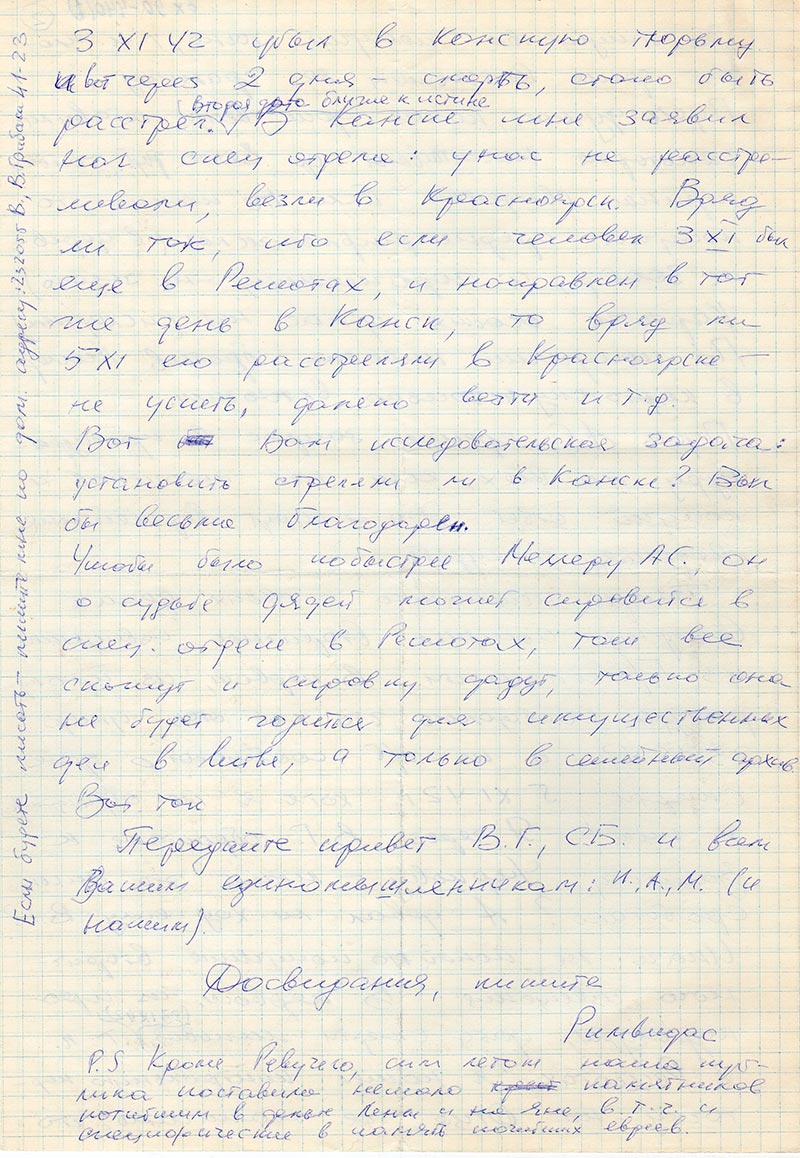 3 XI 42 убыл в Канскую тюрьму
и вот через 2 дня – смерть, стало быть
Вторая дата ближе к истине
расстрел. В Канске мне заявил
нач спец отдела: у нас не расстре-
ливали, везли в Красноярск. Вряд
ли так, ибо если человек 3 XI был
еще в Решотах, и направлен в тот
же день в Канск, то вряд ли
5 XI его расстреляли в Красноярске –
не успеть, далеко везти и т.д.
Вот Вам исследовательская задача:
установить стреляли ли в Канске? Был
бы весьма благодарен.
Чтобы было побыстрее Меллеру А.С., он
о судьбе дядей может справится в
спец. отделе в Решотах, там все
скажут и справку дадут, только она
не будет годится для имущественных
дел в Литве, а только в семейный архив.
Вот так
Передайте привет В.Г., С.Б. и всем
Вашим единомышленникам: И., А., М. (и
нашим).
Досвидания, пишите
Римвидас
P.S. Кроме Ревучего, сим летом наша
публика поставила немало памятников
погибшим в дельте Лены и на Яне, в т.ч. и
специфические в память погибших евреев.
Если будете писать – пишите мне по дом. адресу: 232055 В., В.Грибаш 41-23